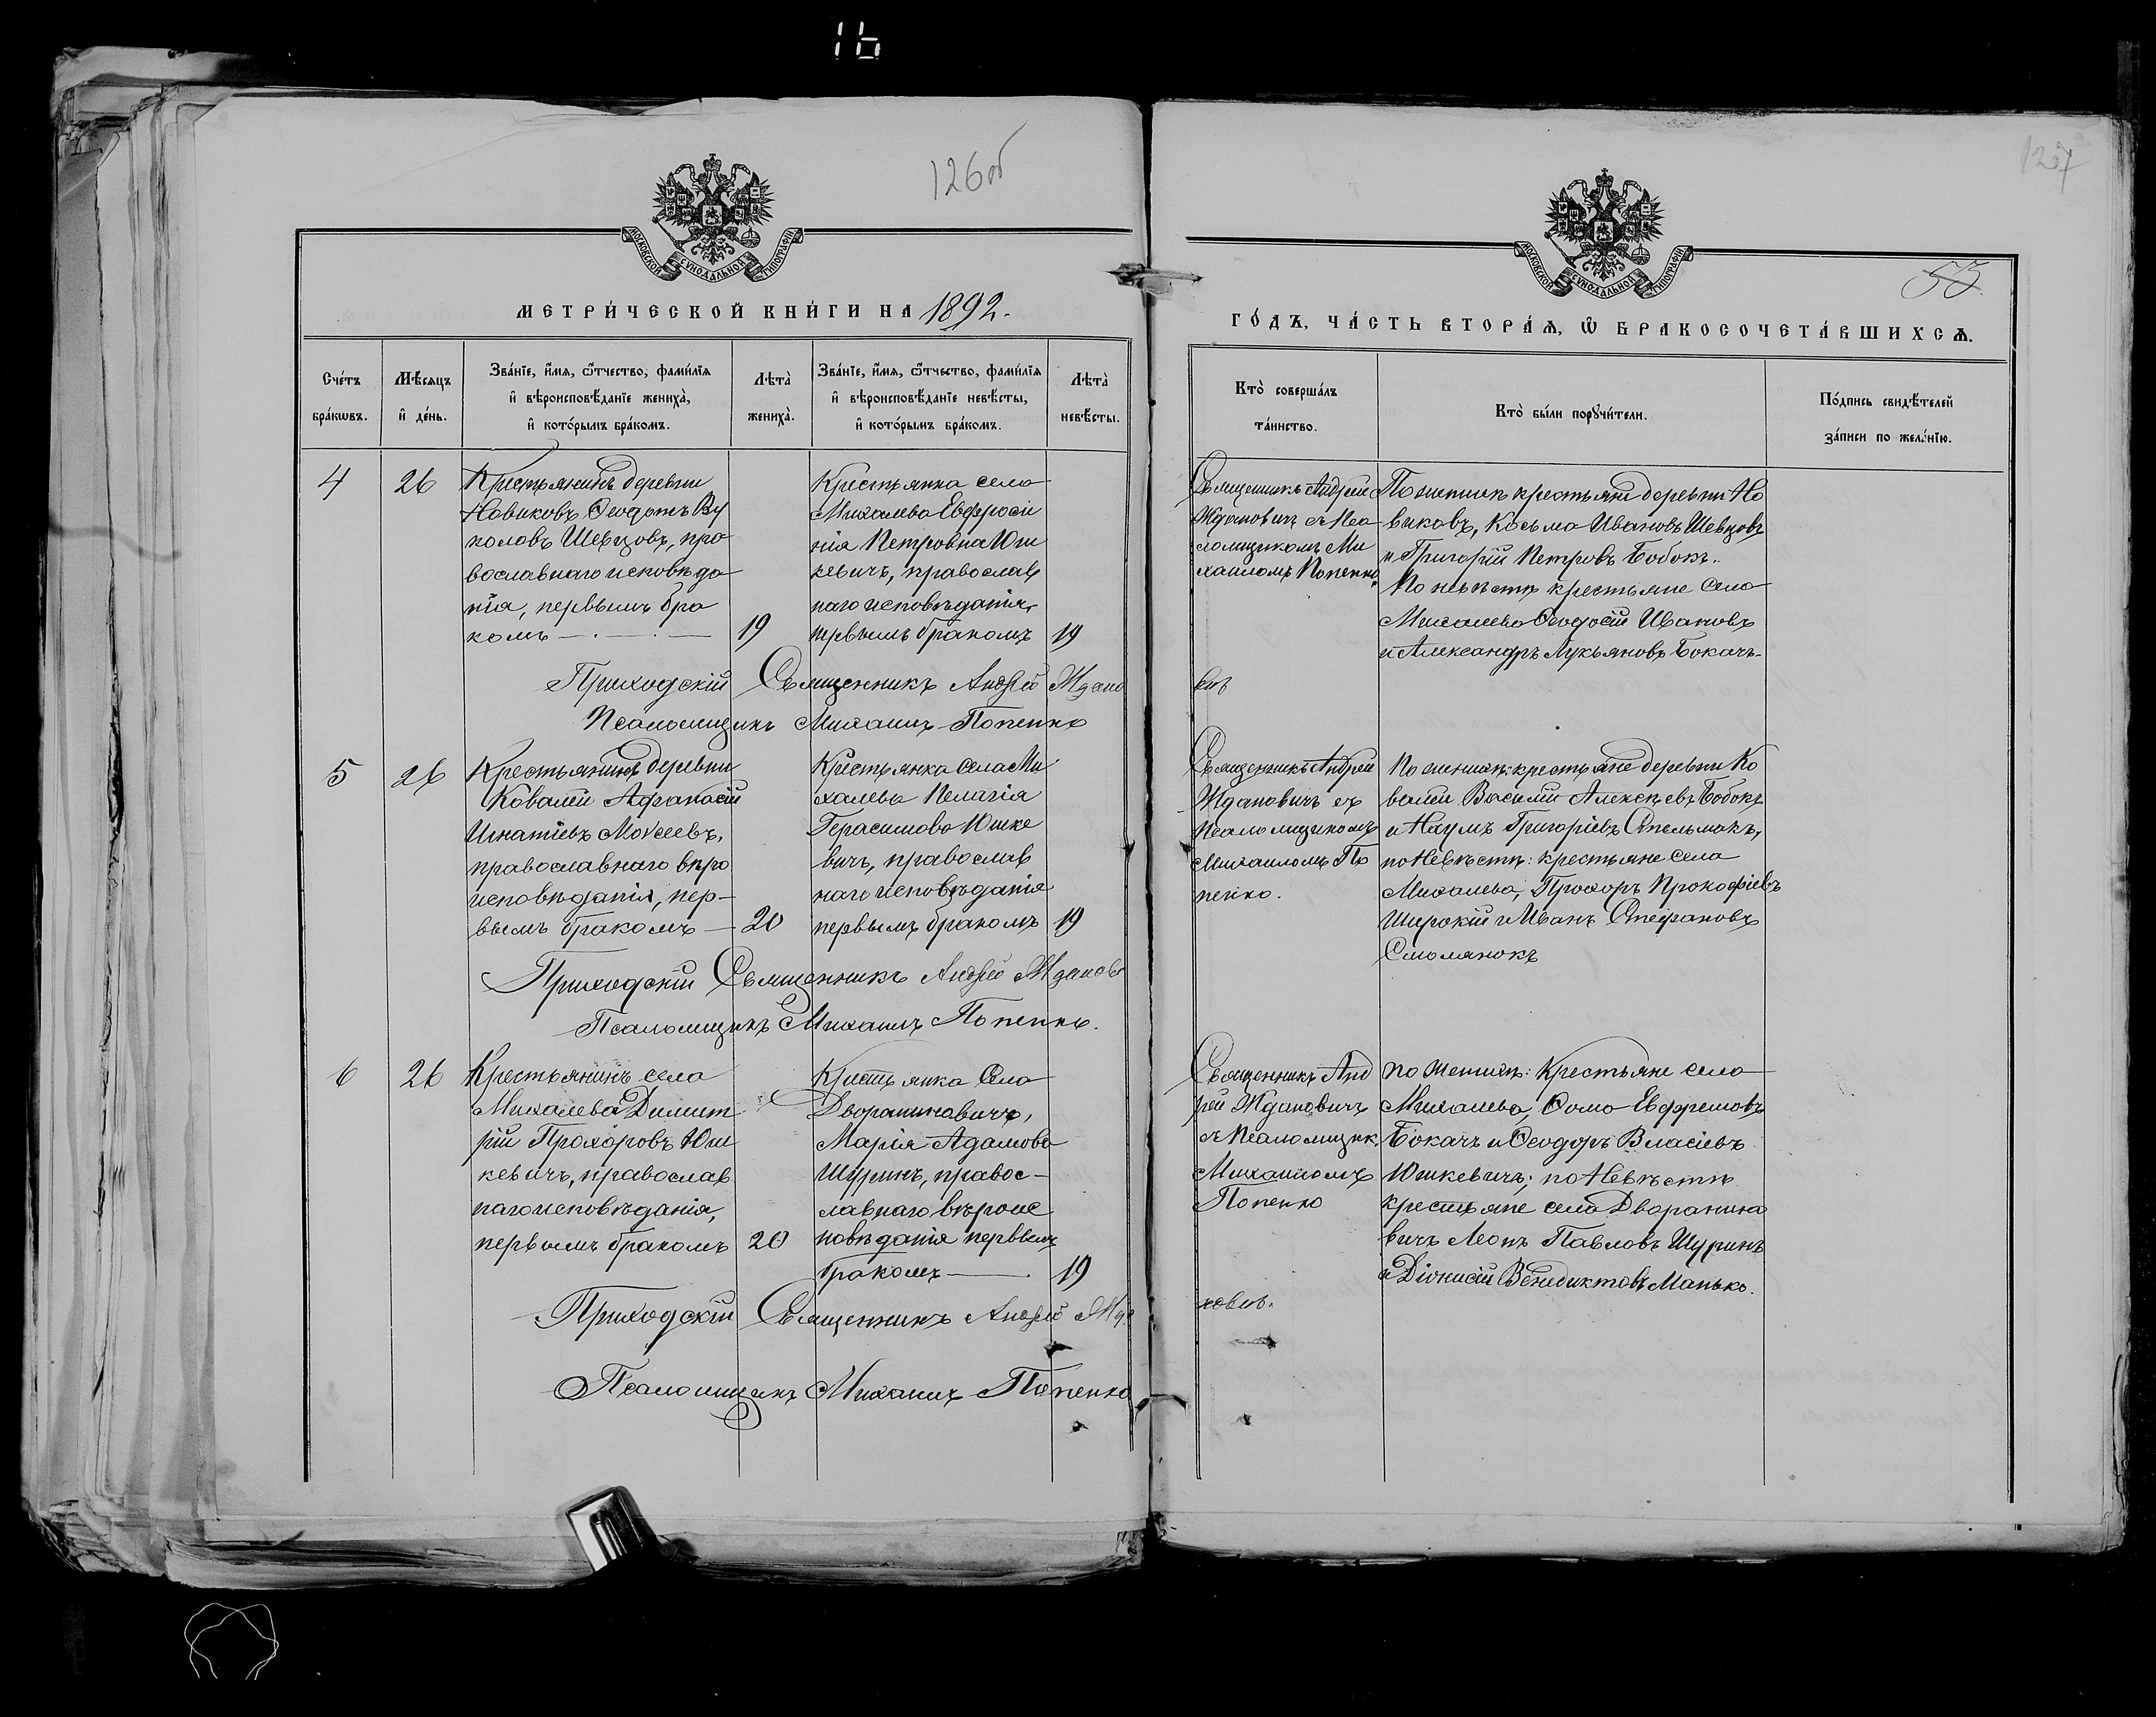 16
126об
127
МОСКОВСКОЙ СѴНОДАЛЬНОЙ ТИПОГРАФІИ
МОСКОВСКОЙ СѴНОДАЛЬНОЙ ТИПОГРАФІИ
53
МЕТРИ́ЧЕСКОЙ КНИ́ГИ НА 1892.
ГО́ДЪ, ЧА́СТЬ ВТОРА́Ѧ, Ѽ БРАКОСОЧЕТА́ВШИХСѦ.
Сче́тъ бра́кѡвъ.
Мѣ́сѧцъ и҆ де́нь.
Зва́нїе, и҆́мѧ, ѻ҆́тчество, фами́лїѧ
и҆ вѣроисповѣ́данїе жениха̀,
и҆ кото́рымъ бра́комъ.
Лѣта̀ жениха̀.
Зва́нїе, и҆́мѧ, ѻ҆́тчество, фами́лїѧ
и҆ вѣроисповѣ́данїе невѣ́сты,
и҆ кото́рымъ бра́комъ.
Лѣта̀ невѣ́сты.
Кто̀ соверша́лъ
та́инство.
Кто̀ бы́ли порꙋчи́тели.
По́дпись свидѣ́телей
за́писи по жела́нїю.
4
26
Крестьянинъ деревни
Новиковъ Ѳеодотъ Ву
коловъ Шевцовъ, пра
вославнаго исповѣда
нія, первымъ бра
комъ
19
Крестьянка села
Михалева Евфроси
нія Петровна Юш
кевичъ, православ
наго исповѣданія,
первымъ бракомъ
19
Священникъ Андрей
Ждановичъ съ Пса
ломщикомъ Ми
хаиломъ Попенко.
По женихѣ крестьяне деревни Но
виковъ, Косьма Ивановъ Шевцовъ
и Григорій Петровъ Бобокъ.
По невѣстѣ крестьяне села
Михалева Ѳеодосій Ивановъ
и Александръ Лукьяновъ Бокачъ.
Приходскій Священникъ Андрей Ждано
вичъ
Псаломщикъ Михаилъ Попенко
5
26
Крестьянинъ деревни
Ковалей Афанасій
Игнатіевъ Моисеевъ,
православнаго вѣро
исповѣданія, пер-
вымъ бракомъ
20
Крестьянка села Ми
халева Пелагія
Герасимова Юшке
вичъ, православ
наго исповѣданія
первымъ бракомъ
19
Священникъ Андрей
Ждановичъ съ
Псаломщикомъ
Михаиломъ По
пенко.
По женихѣ: крестьяне деревни Ко
валей Василій Алексѣевъ Бобокъ
и Наумъ Григоріевъ Стельмакъ,
по Невѣстѣ: крестьяне села
Михалева, Прохоръ Прокофіевъ
Широкій и Иванъ Стефановъ
Смолянокъ
Приходскій Священникъ Андрей Жданов
Псаломщикъ Михаилъ Попенко.
6
26
Крестьянинъ села
Михалева Димит
рій Прохоровъ Юш
кевичъ, православ
наго исповѣданія,
первымъ бракомъ
20
Крестьянка Села
Двораниновичъ,
Марія Адамова
Шуринъ, правос-
лавнаго вѣроис
повѣданія первымъ
бракомъ
19
Священникъ Анд
рей Ждановичъ
съ Псаломщик.
Михаиломъ
Попенко
по женихѣ: Крестьяне села
Михалева, Ѳома Евфремовъ
Бокачъ и Ѳеодоръ Власіевъ
Юшкевичъ; по Невѣстѣ
крестьяне села Дворанино
вичъ Леонъ Павловъ Шуринъ
и Діонисій Венедиктовъ Манько.
Приходскій Священникъ Андрей Жд
новичъ.
Псаломщикъ Михаилъ Попенко